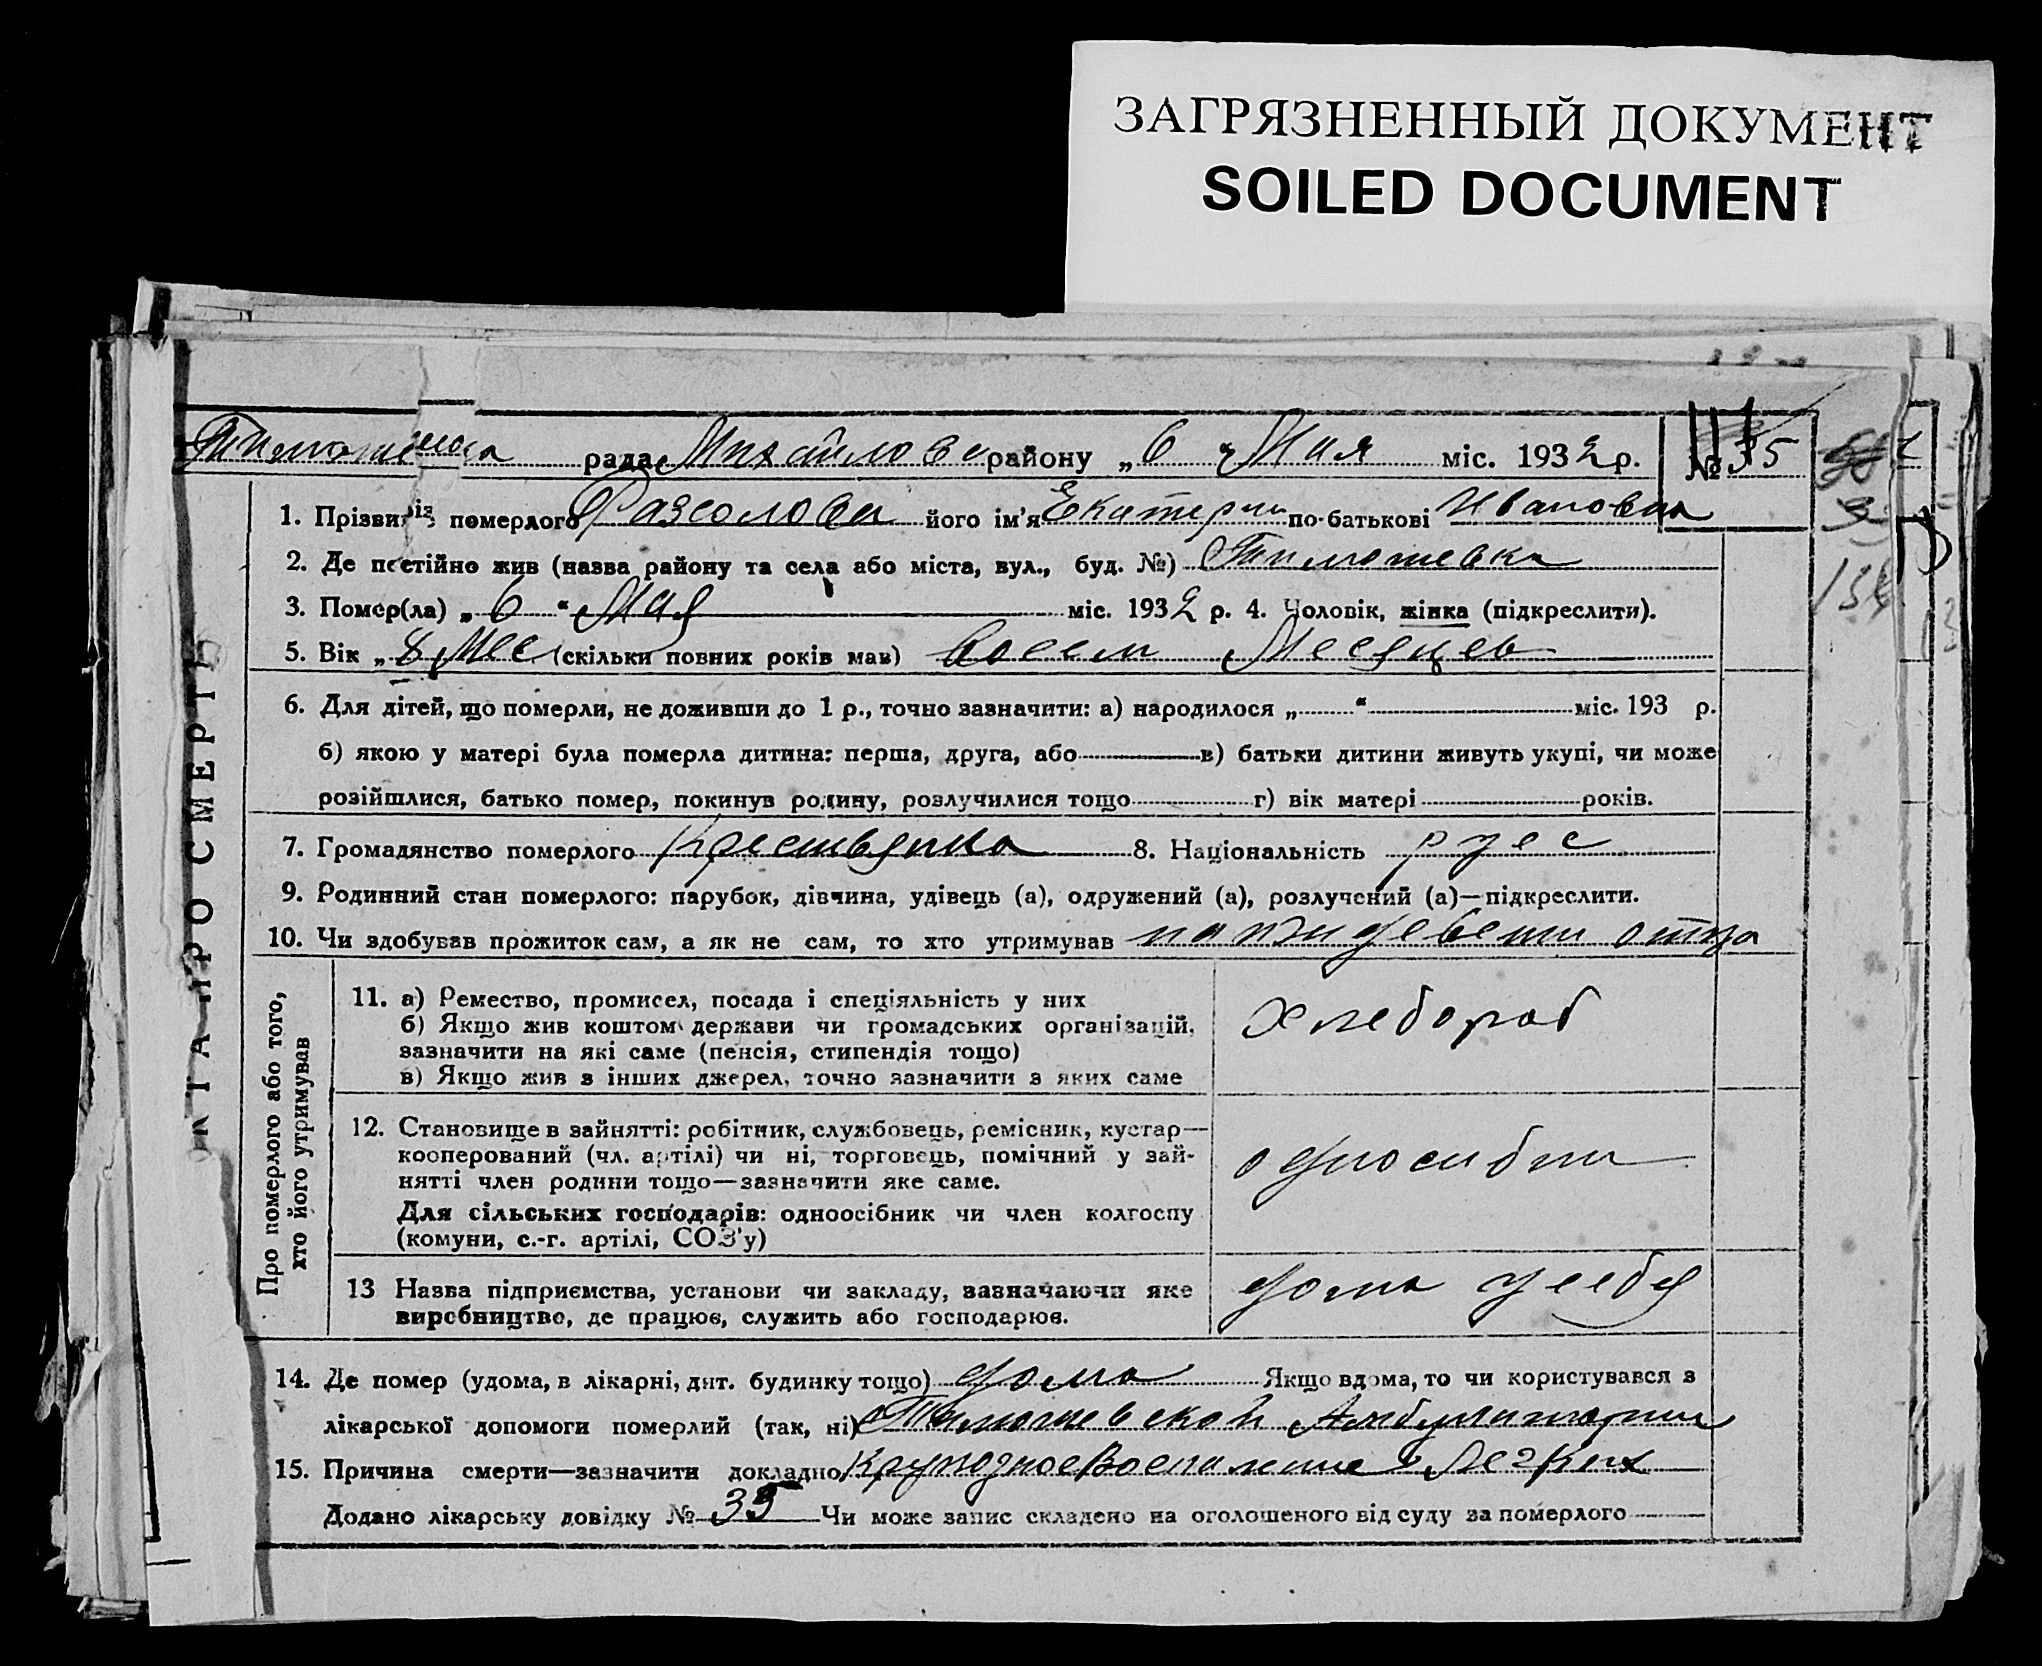 ЗАГРЯЗНЕННЫЙ ДОКУМЕНТ
SOILED DOCUMENT
рада Михайловс району „6 " Мая міс. 1932 р. № 35
1. Прізвиз померлого його ім'я Екатерин по-батькові Ивановна
2. Де постійно жив (назва району та села або міста, вул., буд. №) Тимошевка
3. Помер(ла) „ 6 " Мая міс. 1932 р. 4. Чоловік, жінка (підкреслити).
5. Вік „ 8 Мес (скільки повних років мав) Восем Месяцев
6. Для дітей, що померли, не доживши до 1 р., точно зазначити: а) народилося „ " міс. 193 р.
б) якою у матері була померла дитина: перша, друга, або в) батьки дитини живуть укупі, чи може
розійшлися, батько помер, покинув родину, розлучилися тощо г) вік матері років.
7. Громадянство померлого Крестьянка 8. Національність русс
9. Родинний стан померлого: парубок, дівчина, удівець (а), одружений (а), розлучений (а)—підкреслити.
10. Чи здобував прожиток сам, а як не сам, то хто утримував на иждевении отца
АКТ ПРО СМЕРТЬ
Про померлого або того,
хто його утримував
11. а) Ремество, промисел, посада і спеціяльність у них
б) Якщо жив коштом держави чи громадських організацій,
зазначити на які саме (пенсія, стипендія тощо)
в) Якщо жив з інших джерел, точно зазначити з яких саме
хлебороб
12. Становище в зайнятті: робітник, службовець, ремісник, кустар—
кооперований (чл. артілі) чи ні, торговець, помічний у зай-
нятті член родини тощо—зазначити яке саме.
Для сільських господарів: одноосібник чи член колгоспу
(комуни, с.-г. артілі, СОЗ'у)
односибни
13 Назва підприємства, установи чи закладу, зазначаючи яке
виробництво, де працює, служить або господарює.
дома усебя
14. Де помер (удома, в лікарні, дит. будинку тощо) дома Якщо вдома, то чи користувався з
лікарської допомоги померлий (так, ні) Тимошевской Амбулатории
15. Причина смерти—зазначити докладно Крупозное Воспаление Легких
Додано лікарську довідку № 35 Чи може запис складено на оголошеного від суду за померлого